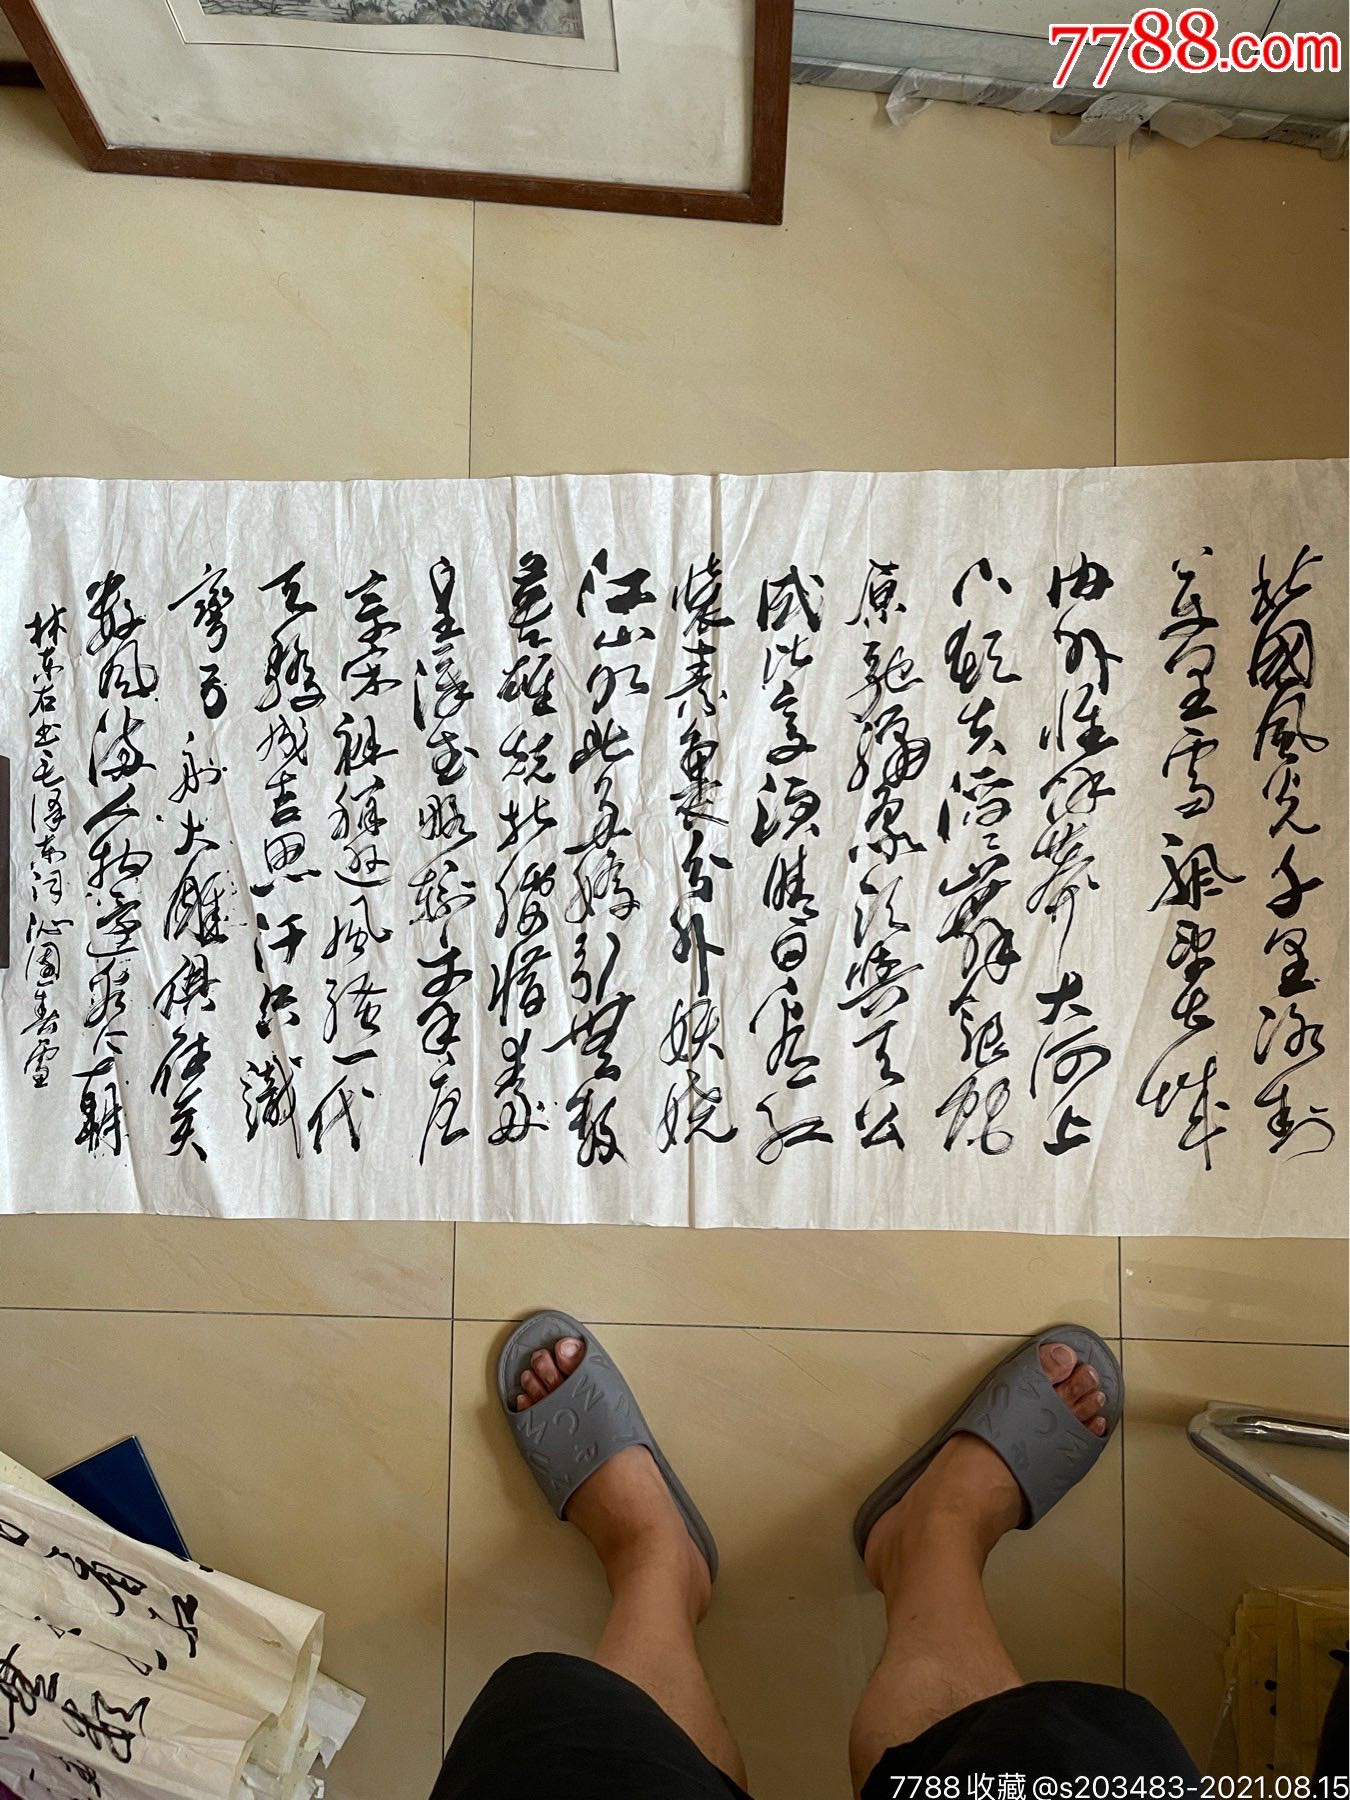 7788.com
北國風光千里冰封
万里雪飘望长城
内外惟馀莽大河上
下顿失滔滔山舞银蛇
原驰蠟象欲與天公
試比高须晴日看红
装素裹分外妖娆
江山如此多娇引無数
英雄競折腰惜秦
皇漢武略輸文采唐
宗宋祖稍逊風骚一代
天骄成吉思汗只識
彎弓射大雕俱往矣
数風流人物還看今朝
林东右书毛泽东词沁園春雪
7788收藏@s203483-2021.08.15